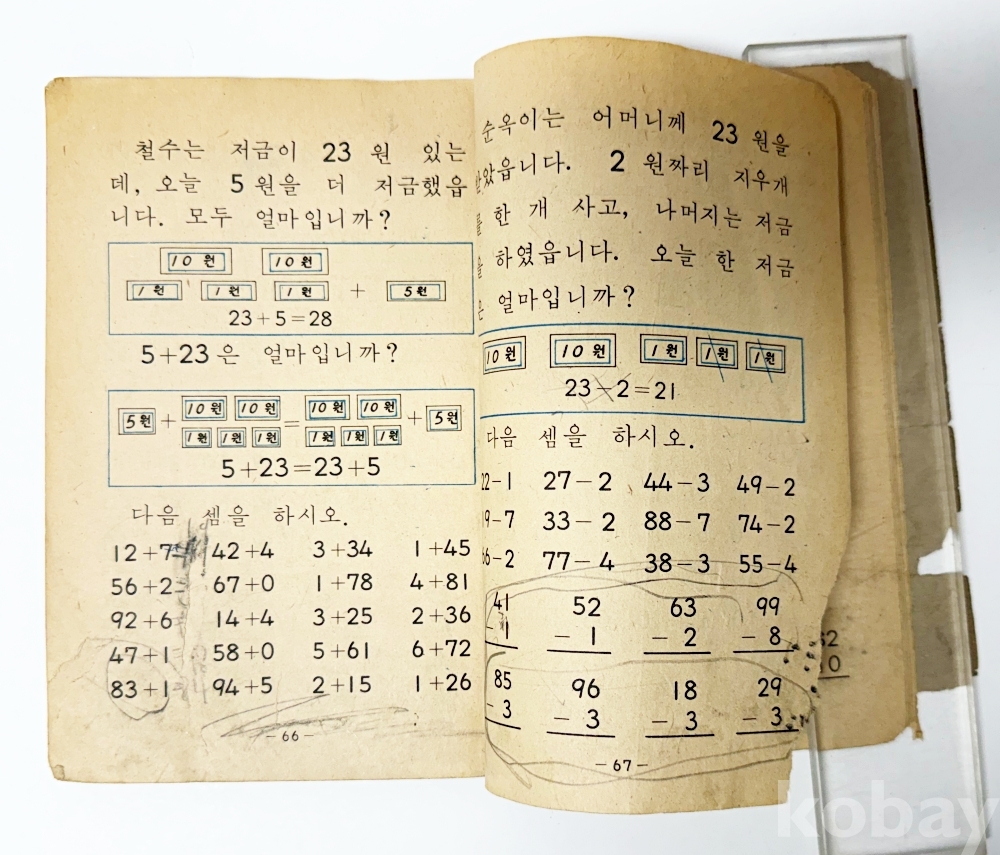 철수는 저금이 23 원 있는
데, 오늘 5 원을 더 저금했읍
니다. 모두 얼마입니까?
10원 10원
1원 1원 1원 + 5원
23+5=28
5+23은 얼마입니까?
5원 + 10원 10원 = 10원 10원 + 5원
1원 1원 1원 1원 1원 1원
5+23=23+5
다음 셈을 하시오.
12+7= 42+4 3+34 1+45
56+2= 67+0 1+78 4+81
92+6= 14+4 3+25 2+36
47+1= 58+0 5+61 6+72
83+1= 94+5 2+15 1+26
-66-
순옥이는 어머니께 23 원을
받았읍니다. 2 원짜리 지우개
를 한 개 사고, 나머지는 저금
을 하였읍니다. 오늘 한 저금
은 얼마입니까?
10원 10원 1원 1원 1원
23-2=21
다음 셈을 하시오.
22-1 27-2 44-3 49-2
9-7 33-2 88-7 74-2
6-2 77-4 38-3 55-4
41 52 63 99
-1 -1 -2 -8
85 96 18 29
-3 -3 -3 -3
-67-
2
0
kobay